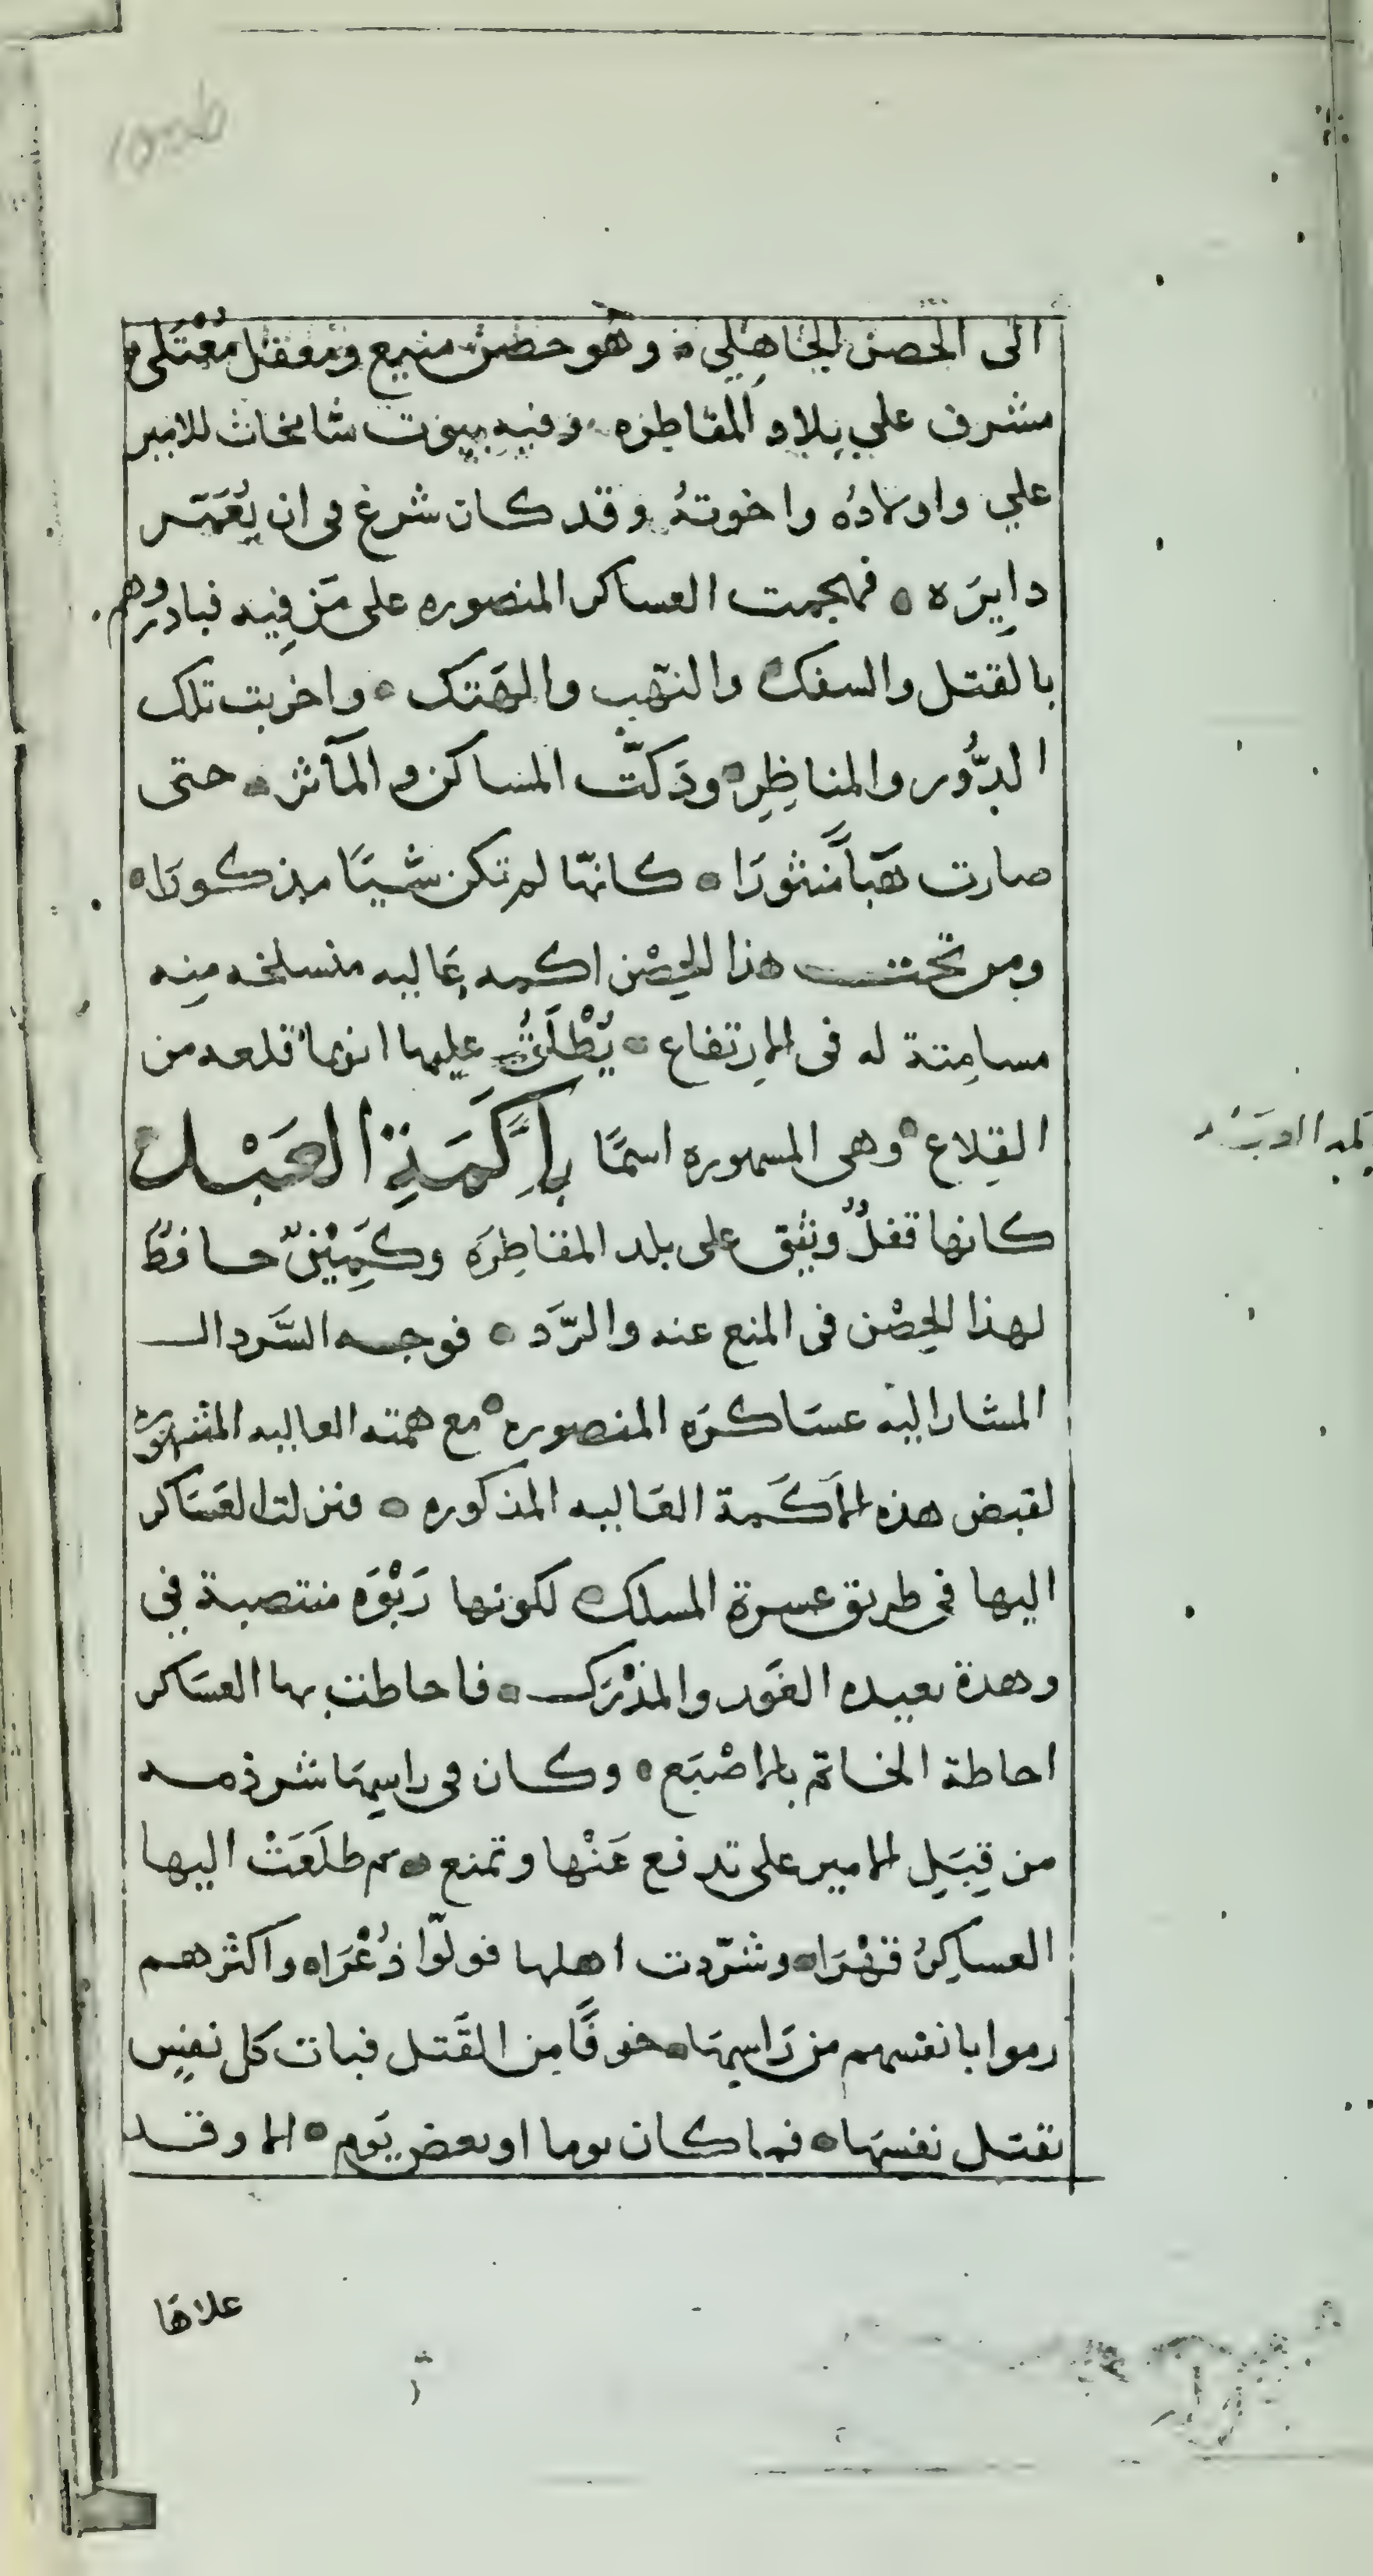 الى الحصن الجاهلي ۰ وهو حصن منيع ومعقل مُعْتَلي
مشرف علي بلاد المقاطره ۰ وفيه بيوت شامخات للامير
علي واولادُه واخوتهُ وقد كان شرع في ان يُعَمّر
دايِرَه ۰ فهجمت العساكر المنصوره على مَن فِيه فبادروهم
بالقتل والسفك والنهب والهَتك ۰ واخربت تلك
الدُّور والمناظِر ۰ ودَكَّت المساكن والمآثر ۰ حتى
صارت هَبآءً مّنثورَا ۰ كانها لم تكن شَيئًا مذكورَا ۰
ومن تحت هذا الحِصْن اكمه عَاليه منسلخه مِنه
مسامِتة له في الاِرتفاع ۰ يُطْلَقُ عليها انها قلعه من
القِلاع ۰ وهي المسهوره اسمًا بِاَكَمَةِ العَبْل
كانها قفلٌ وثيق على بلد المقاطِرَه وكَمِيْنٌ حافظٌ
لهذا الحِصْن في المنع عنه والرَّد ۰ فوجه السَّردال
المشار اليه عسَاكرَه المنصوره ۰ مع همته العاليه المشهوره
لقبض هذه الاَكَمة العَاليه المذكوره ۰ فنزلت العسَاكر
اليها في طريق عسرة المسلك لكونها رَبْوَه منتصبة في
وهدة بعيده الغَور والمدْرَك ۰ فاحاطت بها العسَاكر
احاطة الخاتم بالاصْبَع ۰ وكان في راسِهَا شرذمه
من قِبَلِ الامير على تدفع عَنْها وتمنع ۰ ثم طلَعَتْ اليها
العساكِرُ قهْرَا ۰ وشرّدت اهلها فولّوا ذُعْرَا ۰ واكثرهم
رموا بانفسهم من رَاسِهَا ۰ خوفًا مِن القَتل فبات كل نفسٍ
تقتل نفسهَا ۰ فما كان يوما او بعض يَوم ۰ الا وقد
علاها